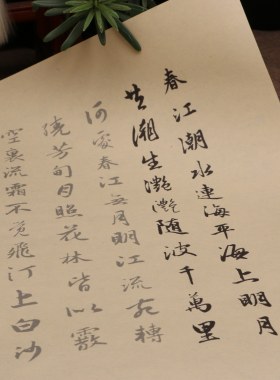 春江潮水連海平海上明月
共潮生灩灩随波千萬里
何處春江無月明江流宛轉
繞芳甸月照花林皆似霰
空裏流霜不覺飛汀上白沙